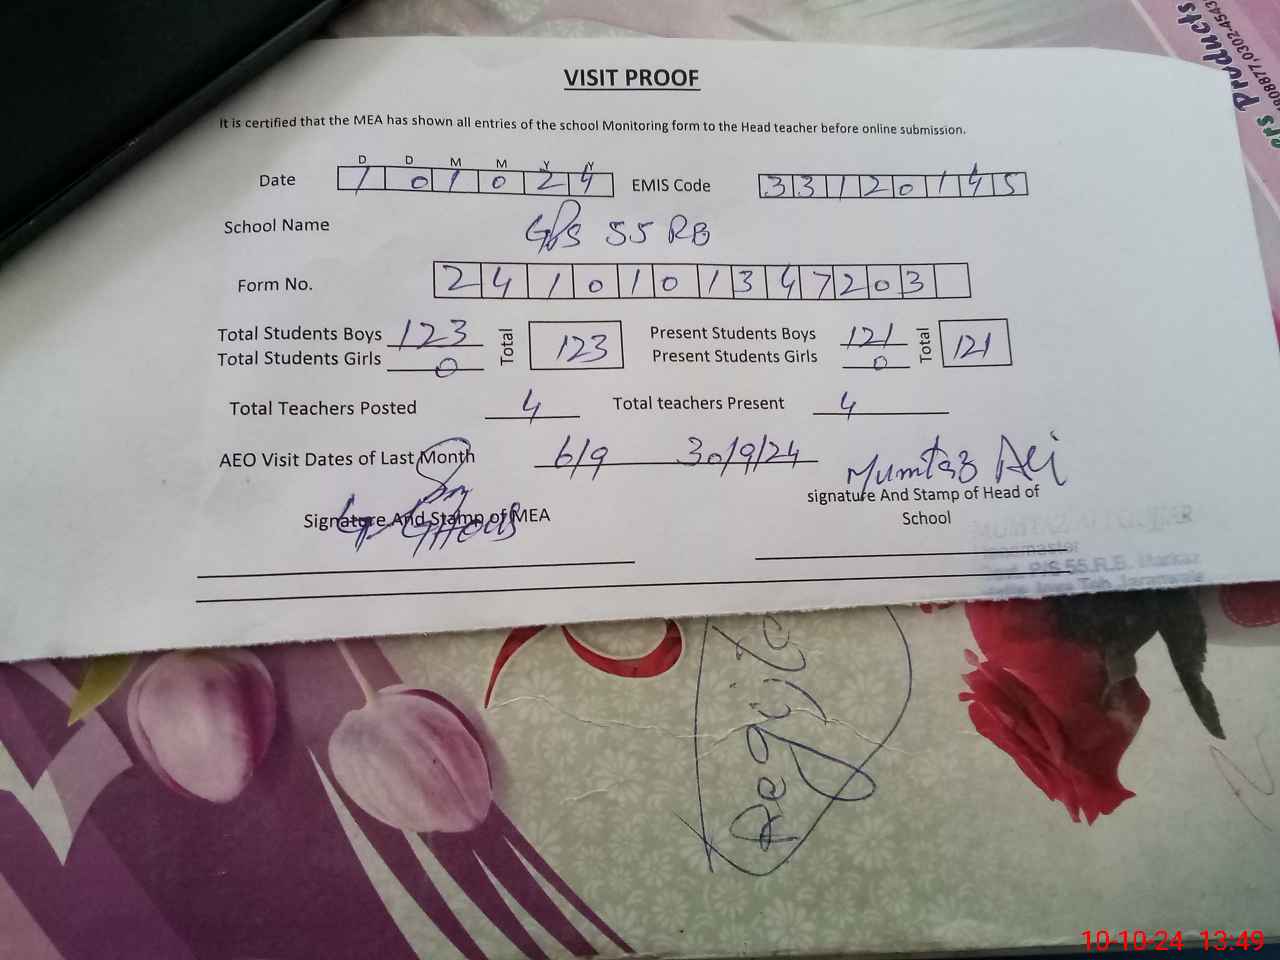 VISIT PROOF
It is certified that the MEA has shown all entries of the school Monitoring form to the Head teacher before online submission.
D D M M Y Y
Date 1 0 1 0 2 4 EMIS Code 3 3 1 2 0 1 4 5
School Name GPS 55 RB
Form No. 2 4 1 0 1 0 1 3 4 7 2 0 3
Total Students Boys 123 Total 123 Present Students Boys 121 Total 121
Total Students Girls 0 Present Students Girls 0
Total Teachers Posted 4 Total teachers Present 4
AEO Visit Dates of Last Month 6/9 30/9/24
Mumtaz Ali
Signature And Stamp of MEA signature And Stamp of Head of School
MUMTAZ
Headmaster
Govt. P/S 55.R.B. Markaz
Teh. Jaranwala
Products
0302-4543
10-10-24 13:49